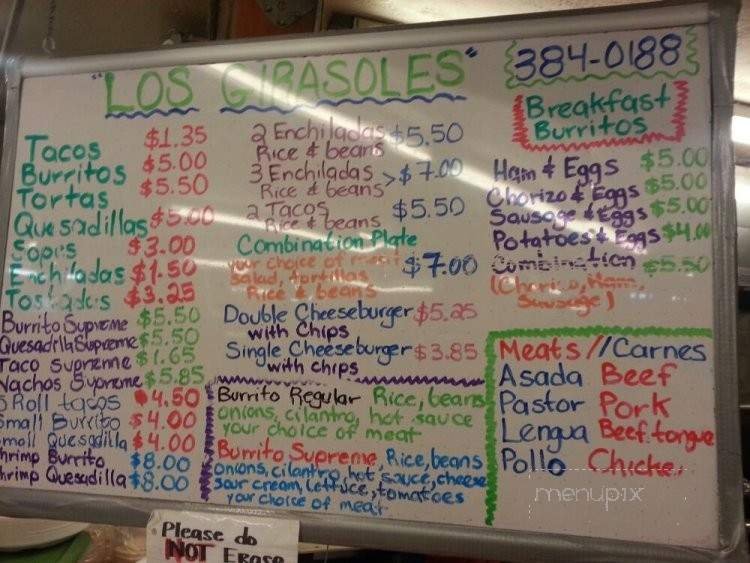 "LOS GIRASOLES"
384-0188
Tacos $1.35
Burritos $5.00
Tortas $5.50
Quesadillas $5.00
Sopes $3.00
Enchiladas $1.50
Tostadas $3.25
Burrito Supreme $5.50
Quesadilla Supreme $5.50
Taco supreme $1.65
Nachos Supreme $5.85
Roll tacos $4.50
Small Burrito $4.00
Small Quesadilla $4.00
Shrimp Burrito $8.00
Shrimp Quesadilla $8.00
2 Enchiladas $5.50
Rice & beans
3 Enchiladas > $7.00
Rice & beans
2 Tacos $5.50
Rice & beans
Combination Plate
your choice of meat $7.00
salad, tortillas
Rice & beans
Double Cheeseburger $5.25
with Chips
Single Cheeseburger $3.85
with chips
Burrito Regular Rice, beans
onions, cilantro, hot sauce
your choice of meat
Burrito Supreme, Rice, beans
onions, cilantro, hot sauce, cheese
sour cream, lettuce, tomatoes
your choice of meat
Breakfast
Burritos
Ham & Eggs $5.00
Chorizo & Eggs $5.00
Sausage & Eggs $5.00
Potatoes & Eggs $4.00
Combination $5.50
(Chorizo, Ham,
Sausage)
Meats//Carnes
Asada Beef
Pastor Pork
Lengua Beef tongue
Pollo Chicken
menupix
Please do
NOT Erase